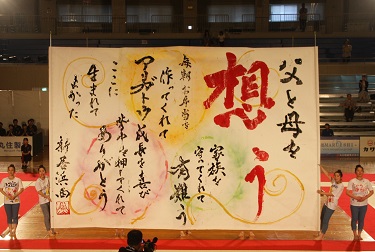 父と母を
想う
家族を
守ってくれて
有難う
毎朝お弁当を
作ってくれて
アリガトウ
成長を喜び
背中を押してくれて
ありがとう
ここに
生まれて
よかった
新居浜西